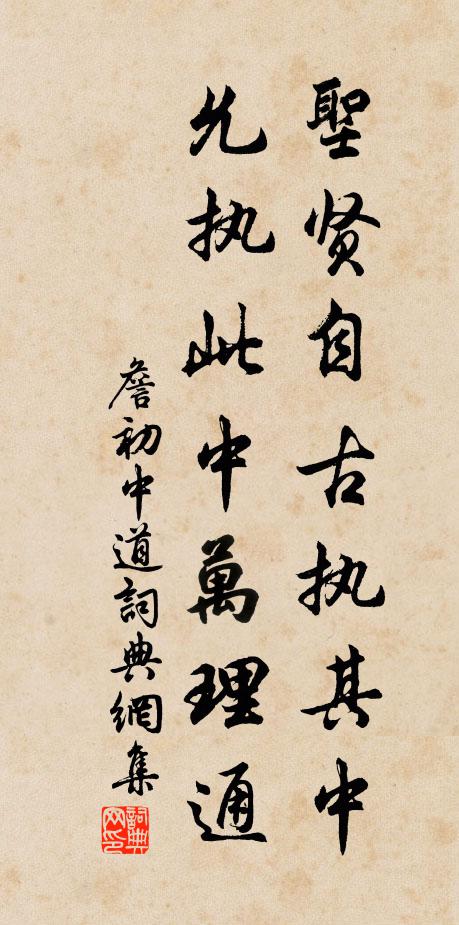 聖贤自古执其中
允执此中萬理通
詹初中道詞典網集
詞典网印